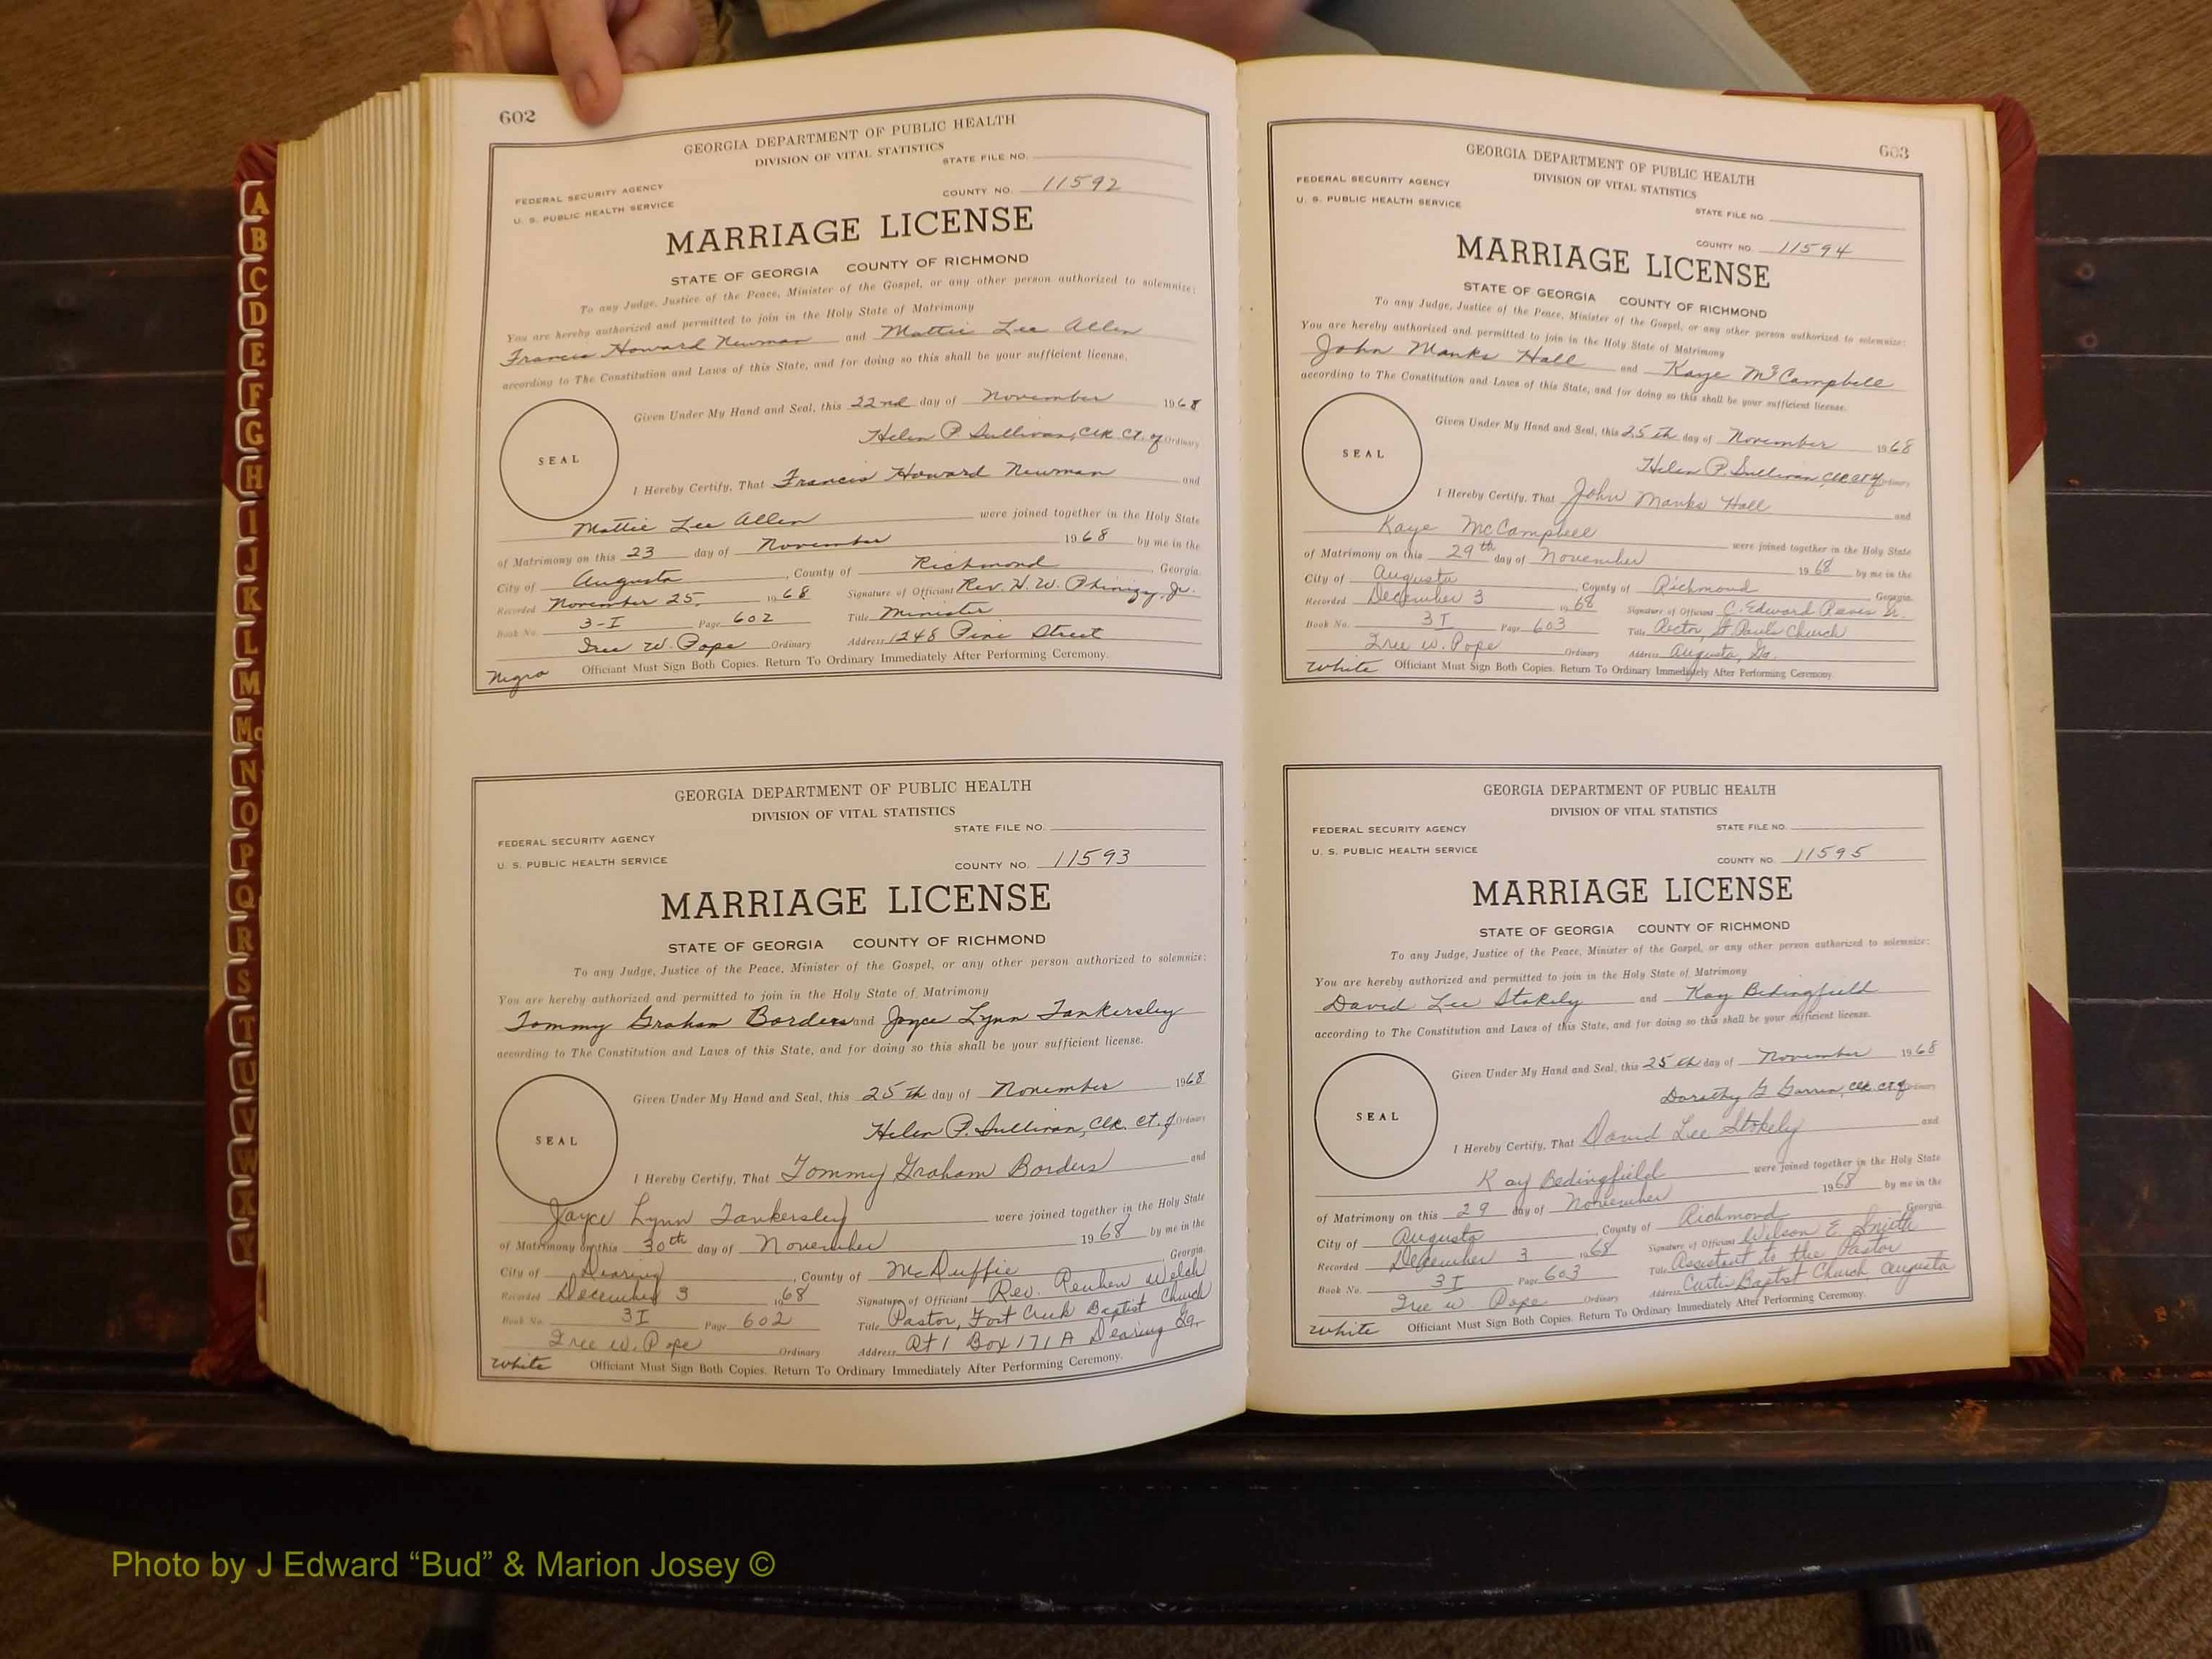 602
GEORGIA DEPARTMENT OF PUBLIC HEALTH
DIVISION OF VITAL STATISTICS
STATE FILE NO.
FEDERAL SECURITY AGENCY
U. S. PUBLIC HEALTH SERVICE
COUNTY NO. 11592
MARRIAGE LICENSE
STATE OF GEORGIA COUNTY OF RICHMOND
To any Judge, Justice of the Peace, Minister of the Gospel, or any other person authorized to solemnize:
You are hereby authorized and permitted to join in the Holy State of Matrimony
Francis Howard Newman and Mattie Lee Allen
according to The Constitution and Laws of this State, and for doing so this shall be your sufficient license.
Given Under My Hand and Seal, this 22nd day of November 1968
Helen P. Sullivan, Clk. Ct. of Ordinary
SEAL
I Hereby Certify, That Francis Howard Newman and
Mattie Lee Allen were joined together in the Holy State
of Matrimony on this 23 day of November 1968 by me in the
City of Augusta, County of Richmond, Georgia.
Recorded November 25, 1968 Signature of Officiant Rev. H. W. Phinizy, Jr.
Book No. 3-I Page 602 Title Minister
Iree W. Pope Ordinary Address 1248 Pine Street
Negro Officiant Must Sign Both Copies. Return To Ordinary Immediately After Performing Ceremony.
GEORGIA DEPARTMENT OF PUBLIC HEALTH
DIVISION OF VITAL STATISTICS
STATE FILE NO.
FEDERAL SECURITY AGENCY
U. S. PUBLIC HEALTH SERVICE
COUNTY NO. 11593
MARRIAGE LICENSE
STATE OF GEORGIA COUNTY OF RICHMOND
To any Judge, Justice of the Peace, Minister of the Gospel, or any other person authorized to solemnize:
You are hereby authorized and permitted to join in the Holy State of Matrimony
Tommy Graham Borders and Joyce Lynn Tankersley
according to The Constitution and Laws of this State, and for doing so this shall be your sufficient license.
Given Under My Hand and Seal, this 25th day of November 1968
Helen P. Sullivan, Clk. Ct. of Ordinary
SEAL
I Hereby Certify, That Tommy Graham Borders and
Joyce Lynn Tankersley were joined together in the Holy State
of Matrimony on this 30th day of November 1968 by me in the
City of Dearing, County of McDuffie Georgia.
Recorded December 3 1968 Signature of Officiant Rev. Reuben Welch
Book No. 3I Page 602 Title Pastor, Fort Creek Baptist Church
Iree W. Pope Ordinary Address Rt 1 Box 171 A Dearing Ga.
White Officiant Must Sign Both Copies. Return To Ordinary Immediately After Performing Ceremony.
603
GEORGIA DEPARTMENT OF PUBLIC HEALTH
DIVISION OF VITAL STATISTICS
FEDERAL SECURITY AGENCY
U. S. PUBLIC HEALTH SERVICE
STATE FILE NO.
COUNTY NO. 11594
MARRIAGE LICENSE
STATE OF GEORGIA COUNTY OF RICHMOND
To any Judge, Justice of the Peace, Minister of the Gospel, or any other person authorized to solemnize:
You are hereby authorized and permitted to join in the Holy State of Matrimony
John Manks Hall and Kaye McCampbell
according to The Constitution and Laws of this State, and for doing so this shall be your sufficient license.
Given Under My Hand and Seal, this 25th day of November 1968
Helen P. Sullivan, Clk Ct of Ordinary
SEAL
I Hereby Certify, That John Manks Hall and
Kaye McCampbell were joined together in the Holy State
of Matrimony on this 29th day of November 1968 by me in the
City of Augusta, County of Richmond Georgia.
Recorded December 3 1968 Signature of Officiant C. Edward Reeves Sr.
Book No. 3I Page 603 Title Rector, St. Pauls Church
Iree W. Pope Ordinary Address Augusta, Ga.
White Officiant Must Sign Both Copies. Return To Ordinary Immediately After Performing Ceremony
GEORGIA DEPARTMENT OF PUBLIC HEALTH
DIVISION OF VITAL STATISTICS
FEDERAL SECURITY AGENCY
STATE FILE NO.
U. S. PUBLIC HEALTH SERVICE
COUNTY NO. 11595
MARRIAGE LICENSE
STATE OF GEORGIA COUNTY OF RICHMOND
To any Judge, Justice of the Peace, Minister of the Gospel, or any other person authorized to solemnize:
You are hereby authorized and permitted to join in the Holy State of Matrimony
David Lee Stokely and Kay Bedingfield
according to The Constitution and Laws of this State, and for doing so this shall be your sufficient license.
Given Under My Hand and Seal, this 25th day of November 1968
Dorothy G. Clk. Ct of Ordinary
SEAL
I Hereby Certify, That David Lee Stokely and
Kay Bedingfield were joined together in the Holy State
of Matrimony on this 29 day of November 1968 by me in the
City of Augusta, County of Richmond Georgia
Recorded December 3 1968 Signature of Officiant Wilson E. Smith
Book No. 3I Page 603 Title Assistant to the Pastor
Iree W. Pope Ordinary Address Curtis Baptist Church, Augusta
White Officiant Must Sign Both Copies. Return To Ordinary Immediately After Performing Ceremony.
A
B
C
D
E
F
G
H
I
J
K
L
M
Mc
N
O
P
Q
R
S
T
U
V
W
X
Y
Photo by J Edward “Bud” & Marion Josey ©